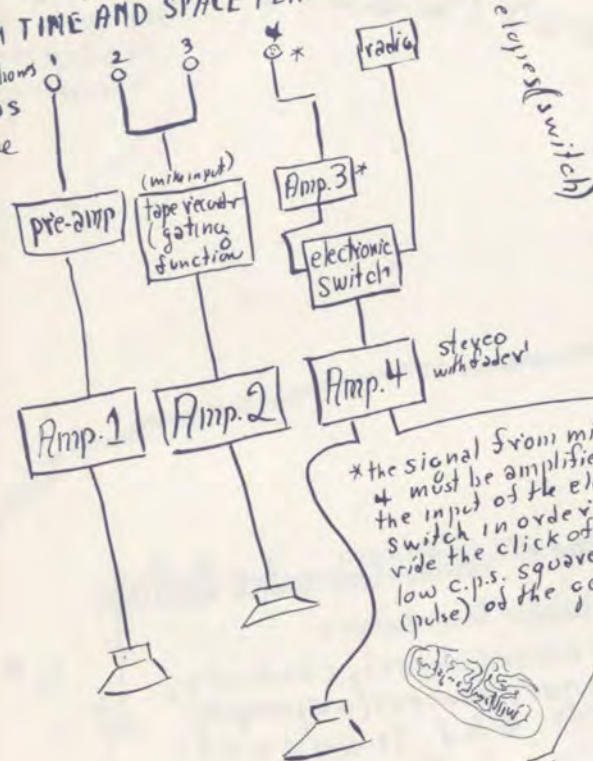 TIME AND SPACE
1
2
3
4
*
radio
elopes (switch)
pre-amp
(mike input)
tape recorder
(gating
function
Amp. 3 *
electronic
switch
Amp. 1
Amp. 2
Amp. 4
stereo
with fader
* the signal from mi
4 must be amplifie
the input of the el
switch in order
ride the click of
low c.p.s. square
(pulse) of the ga